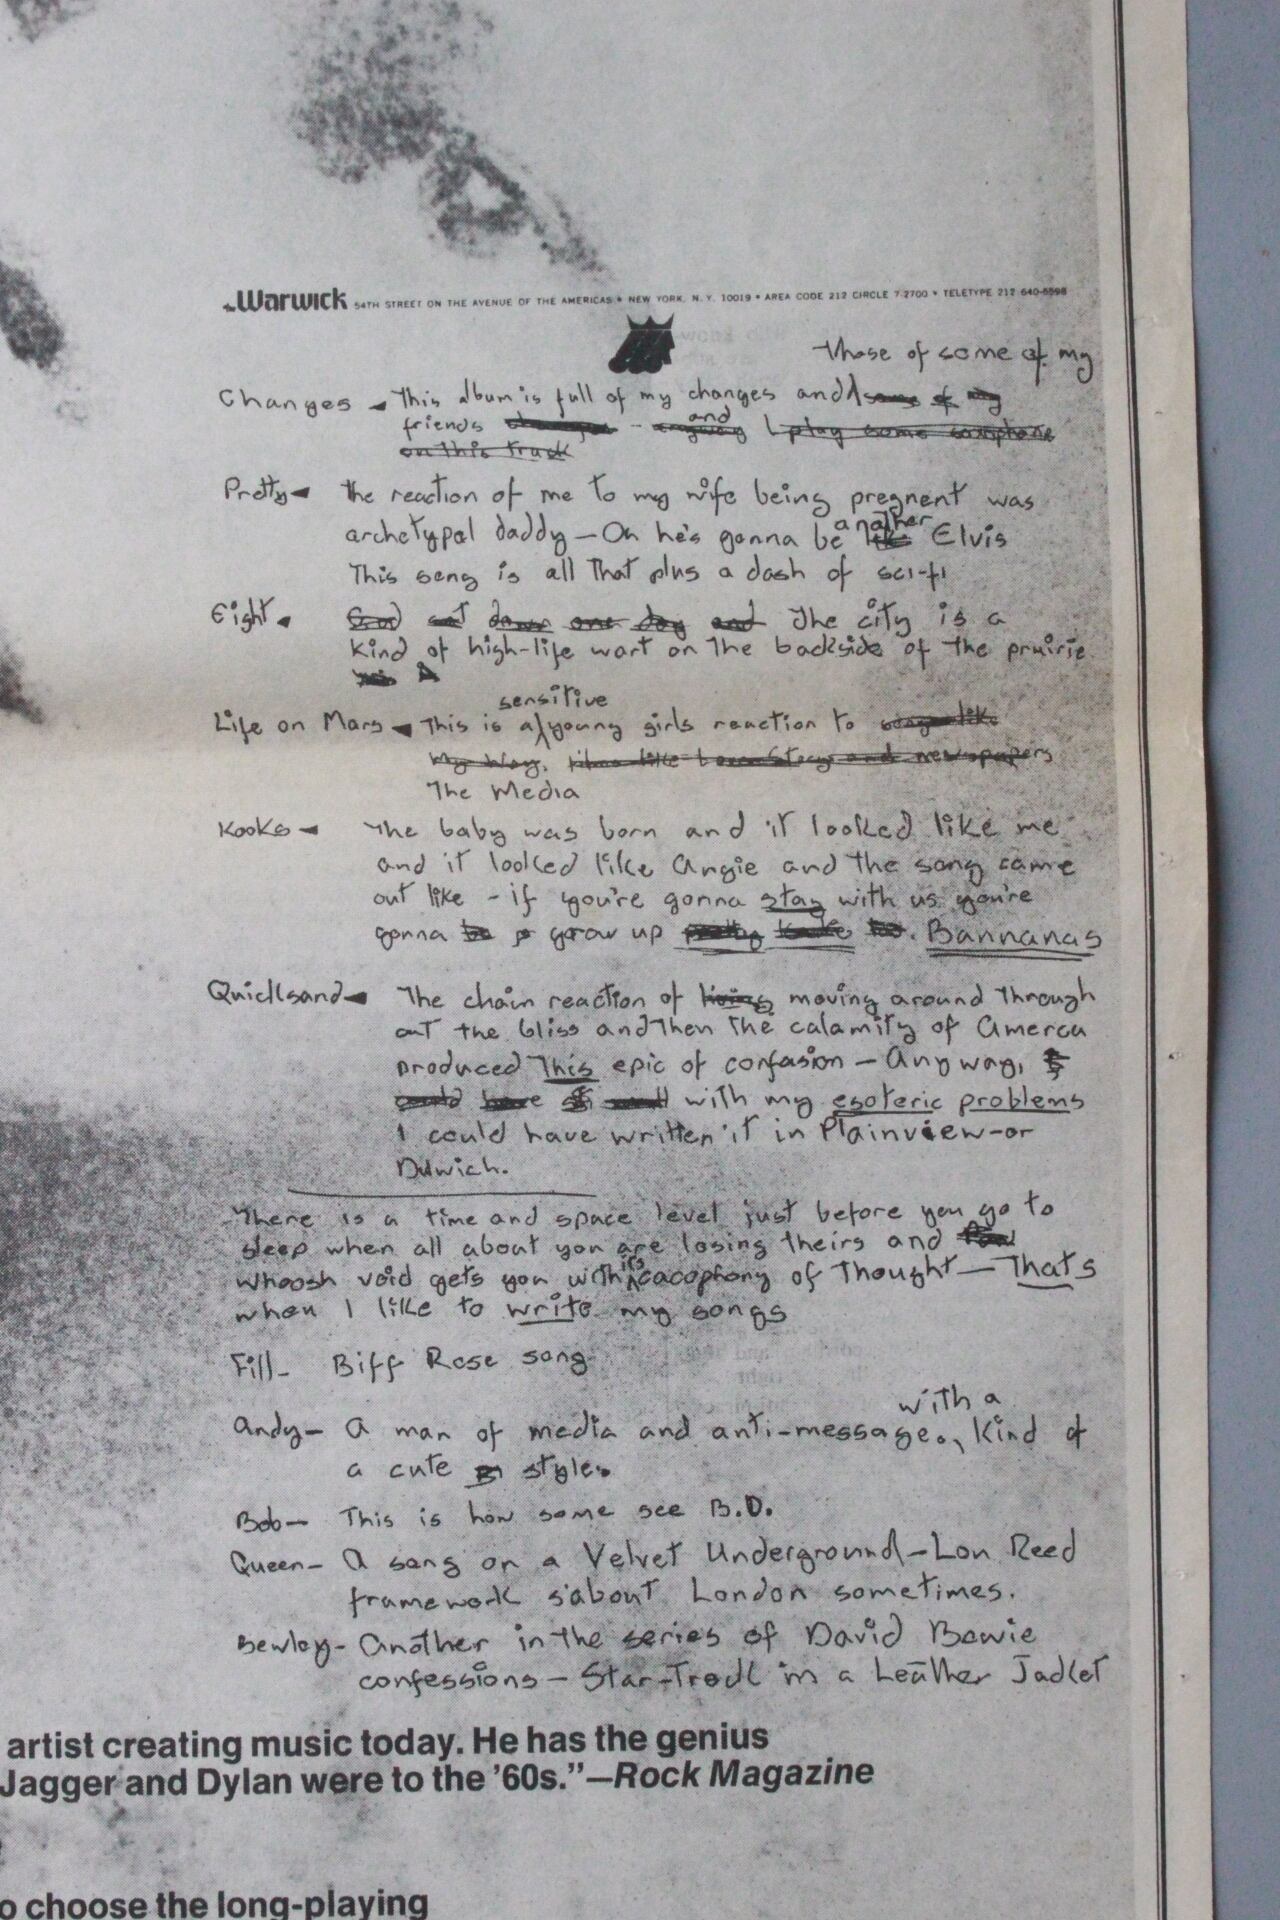 The Warwick 54TH STREET ON THE AVENUE OF THE AMERICAS • NEW YORK, N.Y. 10019 • AREA CODE 212 CIRCLE 7-2700 • TELETYPE 212-640-5598
those of some of my
Changes - This album is full of my changes and some of my
friends changes - anyway and I play some saxophone
on this track
Pretty - The reaction of me to my wife being pregnent was
another
archetypal daddy - Oh he's gonna be like Elvis
This song is all that plus a dash of sci-fi
Eight - God sat down one day and The city is a
kind of high-life wart on the backside of the prairie.
sensitive
Life on Mars - This is a young girls reaction to songs like
My Way, films like Love Story and newspapers
The Media
Kooks - The baby was born and it looked like me
and it looked like Angie and the song came
out like - if you're gonna stay with us you're
gonna be grow up pretty kooky too. Bannanas
Quicksand - The chain reaction of living moving around through
out the bliss and then the calamity of Amerca
produced This epic of confusion - Anyway,
could have with my esoteric problems
I could have written it in Plainview - or
Dulwich.
There is a time and space level just before you go to
sleep when all about you are losing theirs and
whoosh void gets you with its cacophony of thought - Thats
when I like to write my songs
Fill - Biff Rose song
with a
Andy - A man of media and anti-message, kind of
a cute style.
Bob - This is how some see B.D.
Queen - A song on a Velvet Underground - Lou Reed
framework s'about London sometimes.
Bewley - Another in the series of David Bowie
confessions - Star-Treck in a Leather Jacket
artist creating music today. He has the genius
Jagger and Dylan were to the '60s."—Rock Magazine
o choose the long-playing